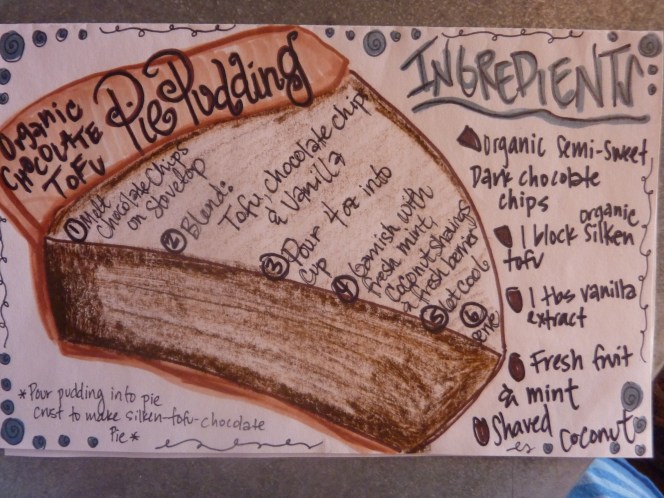 Organic
Chocolate
Tofu
Pie Pudding
① Melt
Chocolate Chips
on Stovetop
② Blend:
Tofu, chocolate chips
& Vanilla
③ Pour 4 oz into
cup
④ Garnish with
fresh mint
Coconut Shavings
& fresh berries
⑤ let Cool
⑥
Serve
*Pour pudding into pie
crust to make silken-tofu-chocolate
Pie*
INGREDIENTS
Organic Semi-Sweet
Dark chocolate
chips
organic
1 block Silken
tofu
1 tbs vanilla
extract
Fresh fruit
& mint
Shaved Coconut